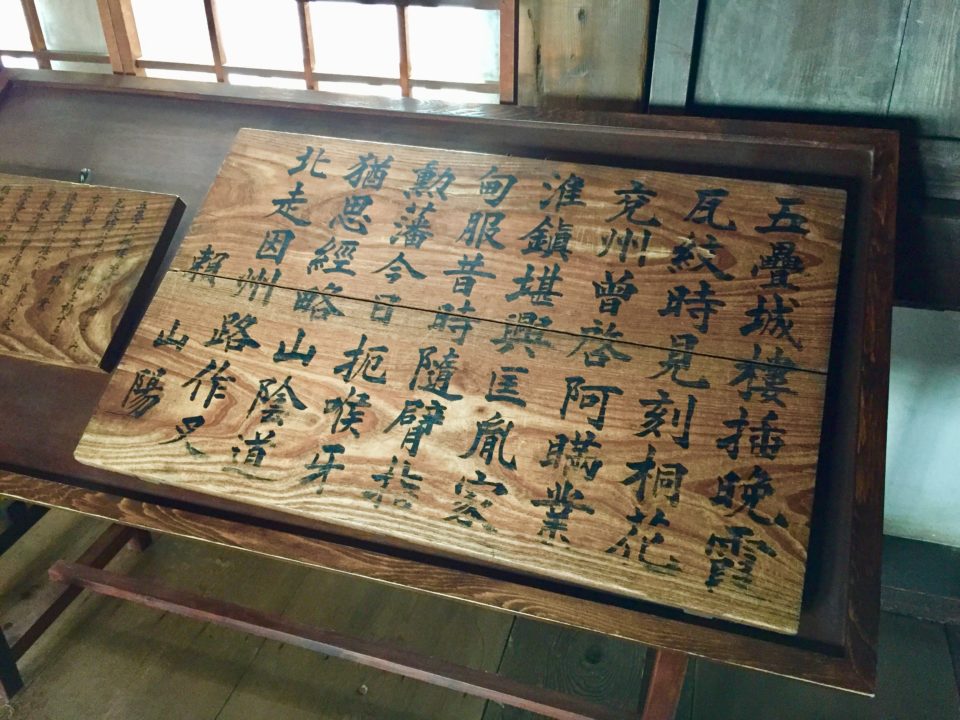 五疊城樓插晚霞
瓦紋時見刻桐花
兗州曾啓阿瞞業
淮鎮堪興匡胤家
甸服昔時隨臂指
勳藩今日扼喉牙
猶思經略山陰道
北走因州路作叉
賴山陽